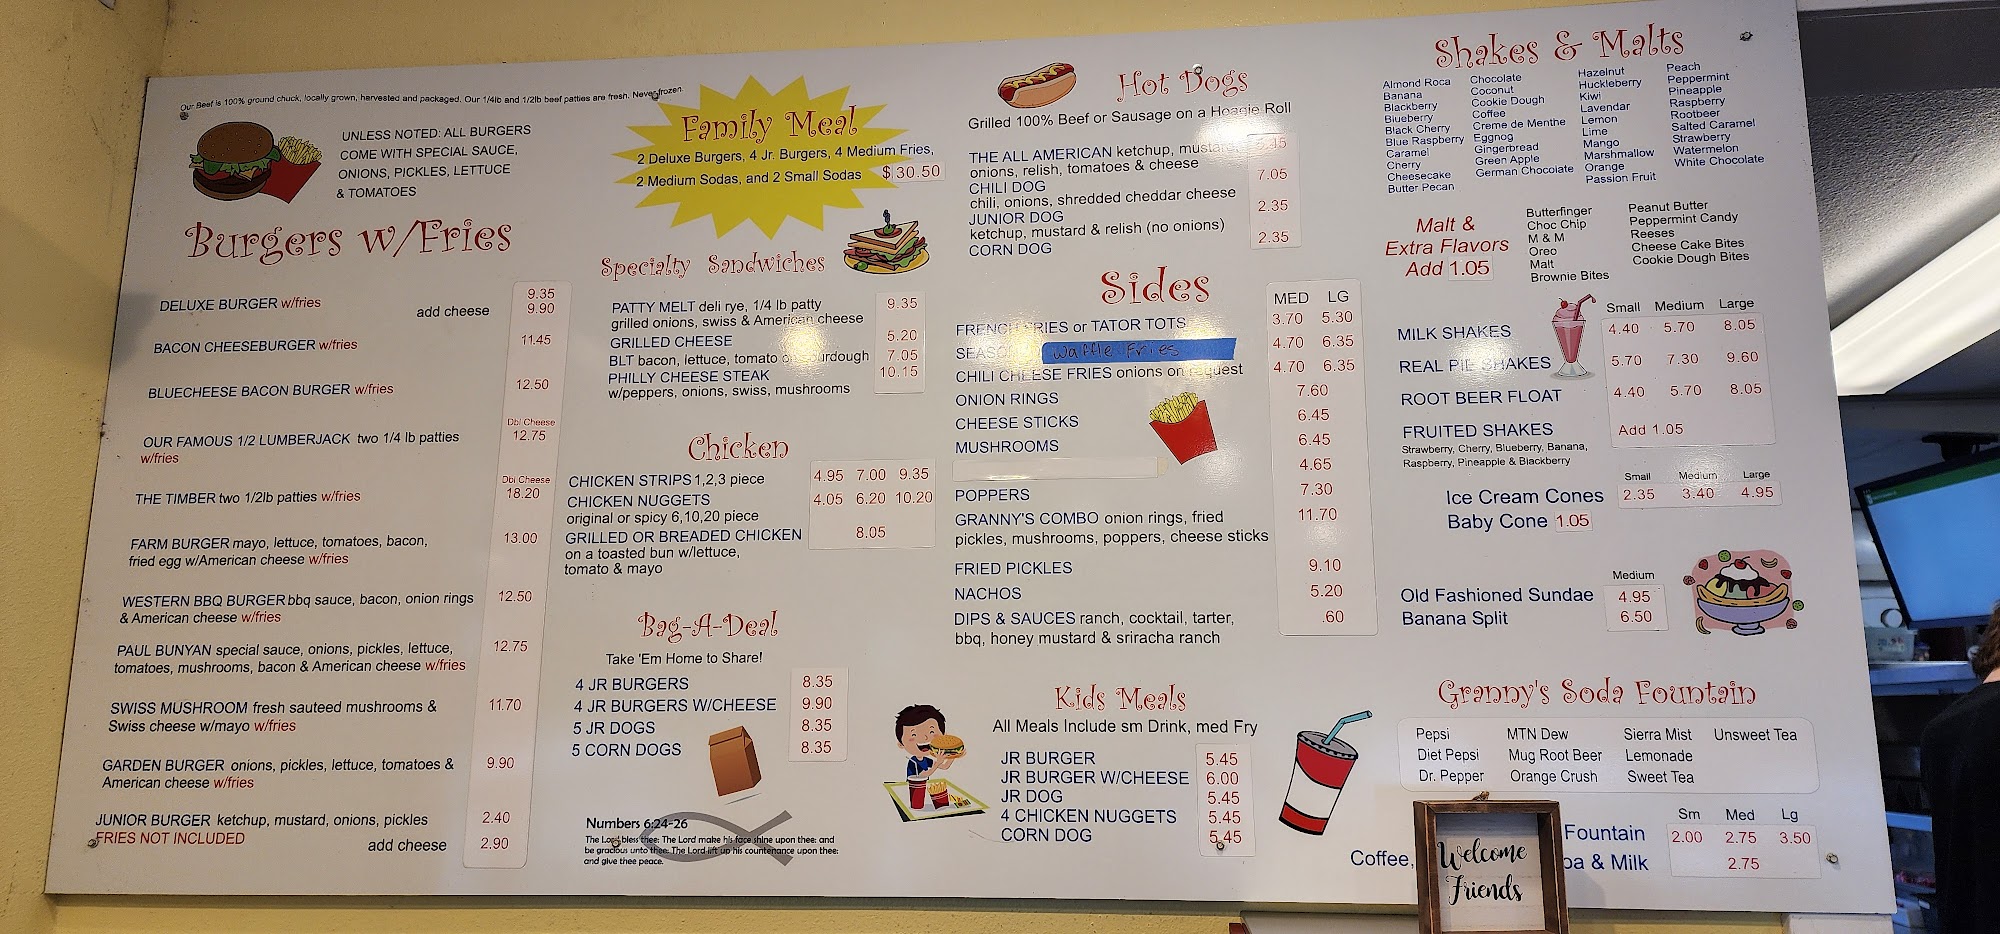 Our Beef is 100% ground chuck, locally grown, harvested and packaged. Our 1/4lb and 1/2lb beef patties are fresh. Never frozen.
UNLESS NOTED: ALL BURGERS
COME WITH SPECIAL SAUCE,
ONIONS, PICKLES, LETTUCE
& TOMATOES
Burgers w/Fries
DELUXE BURGER w/fries 9.35
add cheese 9.90
BACON CHEESEBURGER w/fries 11.45
BLUECHEESE BACON BURGER w/fries 12.50
Dbl Cheese
OUR FAMOUS 1/2 LUMBERJACK two 1/4 lb patties 12.75
w/fries
Dbl Cheese
THE TIMBER two 1/2lb patties w/fries 18.20
FARM BURGER mayo, lettuce, tomatoes, bacon, 13.00
fried egg w/American cheese w/fries
WESTERN BBQ BURGER bbq sauce, bacon, onion rings 12.50
& American cheese w/fries
PAUL BUNYAN special sauce, onions, pickles, lettuce, 12.75
tomatoes, mushrooms, bacon & American cheese w/fries
SWISS MUSHROOM fresh sauteed mushrooms & 11.70
Swiss cheese w/mayo w/fries
GARDEN BURGER onions, pickles, lettuce, tomatoes & 9.90
American cheese w/fries
JUNIOR BURGER ketchup, mustard, onions, pickles 2.40
FRIES NOT INCLUDED
add cheese 2.90
Family Meal
2 Deluxe Burgers, 4 Jr. Burgers, 4 Medium Fries,
2 Medium Sodas, and 2 Small Sodas $ 30.50
Specialty Sandwiches
PATTY MELT deli rye, 1/4 lb patty 9.35
grilled onions, swiss & American cheese
GRILLED CHEESE 5.20
BLT bacon, lettuce, tomato on sourdough 7.05
PHILLY CHEESE STEAK 10.15
w/peppers, onions, swiss, mushrooms
Chicken
CHICKEN STRIPS 1,2,3 piece 4.95 7.00 9.35
CHICKEN NUGGETS 4.05 6.20 10.20
original or spicy 6,10,20 piece
GRILLED OR BREADED CHICKEN 8.05
on a toasted bun w/lettuce,
tomato & mayo
Bag-A-Deal
Take 'Em Home to Share!
4 JR BURGERS 8.35
4 JR BURGERS W/CHEESE 9.90
5 JR DOGS 8.35
5 CORN DOGS 8.35
Numbers 6:24-26
The Lord bless thee: The Lord make his face shine upon thee: and
be gracious unto thee: The Lord lift up his countenance upon thee:
and give thee peace.
Hot Dogs
Grilled 100% Beef or Sausage on a Hoagie Roll
THE ALL AMERICAN ketchup, mustard,
onions, relish, tomatoes & cheese
CHILI DOG 7.05
chili, onions, shredded cheddar cheese
JUNIOR DOG 2.35
ketchup, mustard & relish (no onions)
CORN DOG 2.35
Sides
MED LG
FRENCH FRIES or TATOR TOTS 3.70 5.30
SEASO Waffle Fries 4.70 6.35
CHILI CHEESE FRIES onions on request 4.70 6.35
ONION RINGS 7.60
CHEESE STICKS 6.45
MUSHROOMS 6.45
4.65
POPPERS 7.30
GRANNY'S COMBO onion rings, fried 11.70
pickles, mushrooms, poppers, cheese sticks
FRIED PICKLES 9.10
NACHOS 5.20
DIPS & SAUCES ranch, cocktail, tarter, .60
bbq, honey mustard & sriracha ranch
Kids Meals
All Meals Include sm Drink, med Fry
JR BURGER 5.45
JR BURGER W/CHEESE 6.00
JR DOG 5.45
4 CHICKEN NUGGETS 5.45
CORN DOG 5.45
Shakes & Malts
Almond Roca
Banana
Blackberry
Blueberry
Black Cherry
Blue Raspberry
Caramel
Cherry
Cheesecake
Butter Pecan
Chocolate
Coconut
Cookie Dough
Coffee
Creme de Menthe
Eggnog
Gingerbread
Green Apple
German Chocolate
Hazelnut
Huckleberry
Kiwi
Lavendar
Lemon
Lime
Mango
Marshmallow
Orange
Passion Fruit
Peach
Peppermint
Pineapple
Raspberry
Rootbeer
Salted Caramel
Strawberry
Watermelon
White Chocolate
Malt &
Extra Flavors
Add 1.05
Butterfinger
Choc Chip
M & M
Oreo
Malt
Brownie Bites
Peanut Butter
Peppermint Candy
Reeses
Cheese Cake Bites
Cookie Dough Bites
Small Medium Large
MILK SHAKES 4.40 5.70 8.05
REAL PIE SHAKES 5.70 7.30 9.60
ROOT BEER FLOAT 4.40 5.70 8.05
FRUITED SHAKES Add 1.05
Strawberry, Cherry, Blueberry, Banana,
Raspberry, Pineapple & Blackberry
Small Medium Large
Ice Cream Cones 2.35 3.40 4.95
Baby Cone 1.05
Medium
Old Fashioned Sundae 4.95
Banana Split 6.50
Granny's Soda Fountain
Pepsi MTN Dew Sierra Mist Unsweet Tea
Diet Pepsi Mug Root Beer Lemonade
Dr. Pepper Orange Crush Sweet Tea
Sm Med Lg
Fountain 2.00 2.75 3.50
Coffee, oa & Milk 2.75
Welcome
Friends